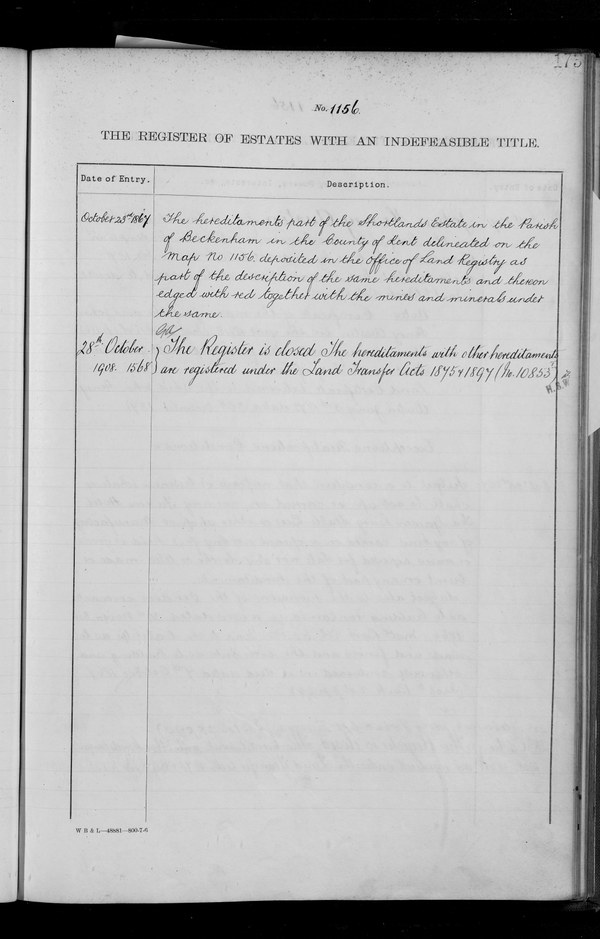 173
No. 1156.
THE REGISTER OF ESTATES WITH AN INDEFEASIBLE TITLE.
Date of Entry.
Description.
October 23rd 1867
The hereditaments part of the Shortlands Estate in the Parish
of Beckenham in the County of Kent delineated on the
Map No 1156. deposited in the Office of Land Registry as
part of the description of the same hereditaments and thereon
edged with red together with the mines and minerals under
the same.
28th October
1908. 1568
The Register is closed The hereditaments with other hereditaments
are registered under the Land Transfer Acts 1875 & 1897 (No. 10853)
W B & L—48881—800-7-6